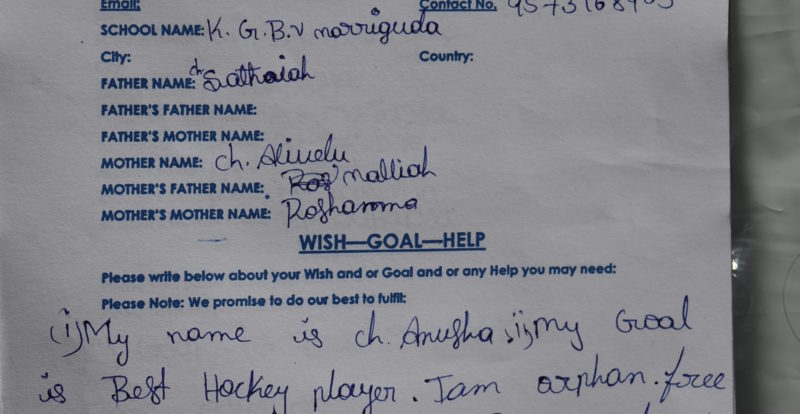 Email: Contact No. 9573168905
SCHOOL NAME: K. G.B.V marriguda
City: Country:
FATHER NAME: ch. Sathaiah
FATHER'S FATHER NAME:
FATHER'S MOTHER NAME:
MOTHER NAME: ch. Alivelu
MOTHER'S FATHER NAME: malliah
MOTHER'S MOTHER NAME: Roshamma
WISH—GOAL—HELP
Please write below about your Wish and or Goal and or any Help you may need:
Please Note: We promise to do our best to fulfil:
(i) My name is ch. Anusha. ii, my Goal
is Best Hockey player. I am orphan. free